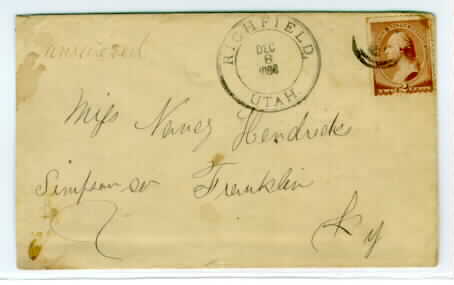 Answered
RICHFIELD,
DEC
6
1886
UTAH.
2
Miss Nancy Hendricks
Simpson co Franklin
Ky